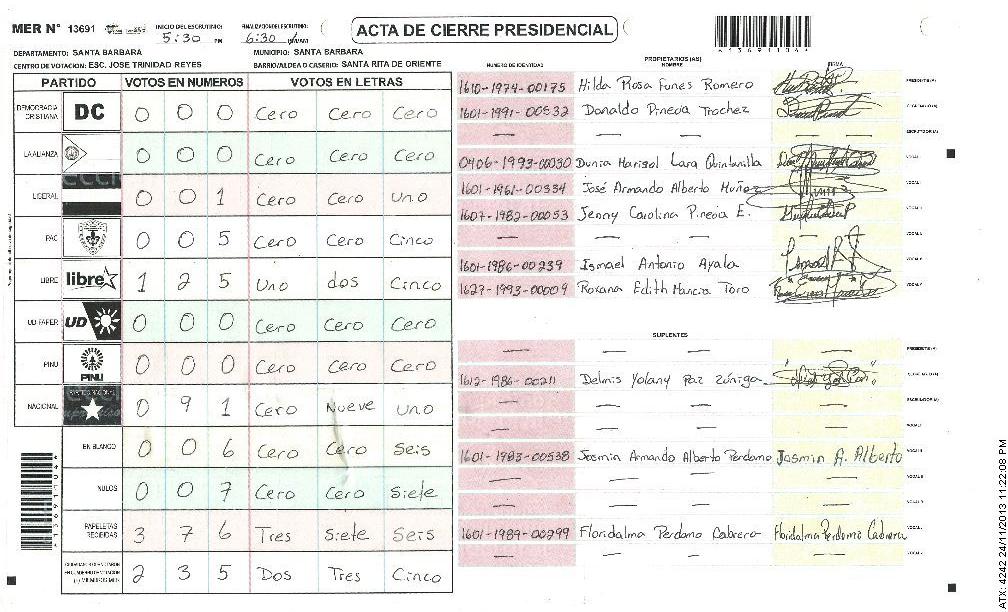 MER N° 13691 INICIO DEL ESCRUTINIO: 5:30 PM FINALIZACION DEL ESCRUTINIO: 6:30 ACTA DE CIERRE PRESIDENCIAL
DEPARTAMENTO: SANTA BARBARA MUNICIPIO: SANTA BARBARA
CENTRO DE VOTACION: ESC. JOSE TRINIDAD REYES BARRIO/ALDEA O CASERIO: SANTA RITA DE ORIENTE
PARTIDO VOTOS EN NUMEROS VOTOS EN LETRAS
DEMOCRACIA CRISTIANA DC 0 0 0 Cero Cero Cero
LA ALIANZA 0 0 0 Cero Cero Cero
LIBERAL 0 0 1 Cero Cero Uno
PAC 0 0 5 Cero Cero Cinco
LIBRE libre 1 2 5 Uno dos Cinco
UD FAPER UD 0 0 0 Cero Cero Cero
PINU PINU 0 0 0 Cero Cero Cero
NACIONAL 0 9 1 Cero Nueve Uno
EN BLANCO 0 0 6 Cero Cero Seis
NULOS 0 0 7 Cero Cero Siete
PAPELETAS RECIBIDAS 3 7 6 Tres Siete Seis
2 3 5 Dos Tres Cinco
PROPIETARIOS (AS)
NUMERO DE IDENTIDAD NOMBRE FIRMA
1610-1974-00175 Hilda Rosa Funes Romero PRESIDENTE(A)
1601-1991-00532 Donaldo Pineda Trochez SECRETARIO(A)
— — — ESCRUTADOR(A)
0406-1993-00030 Dunia Marisol Lara Quintanilla
1601-1961-00334 José Armando Alberto Muñoz
1607-1982-00053 Jenny Carolina Pineda E.
— — —
1601-1986-00239 Ismael Antonio Ayala
1627-1993-00009 Roxana Edith Mancia Toro
SUPLENTES
— — — PRESIDENTE(A)
1612-1986-00211 Delmis Yolany Paz Zúniga SECRETARIO(A)
— — — ESCRUTADOR(A)
— — —
1601-1983-00538 Josmin Armando Alberto Perdomo Josmin A. Alberto
— — —
— — —
1601-1989-00299 Floridalma Perdomo Cabrera Floridalma Perdomo Cabrera
— — —
ATX: 4242 24/11/2013 11:22:08 PM